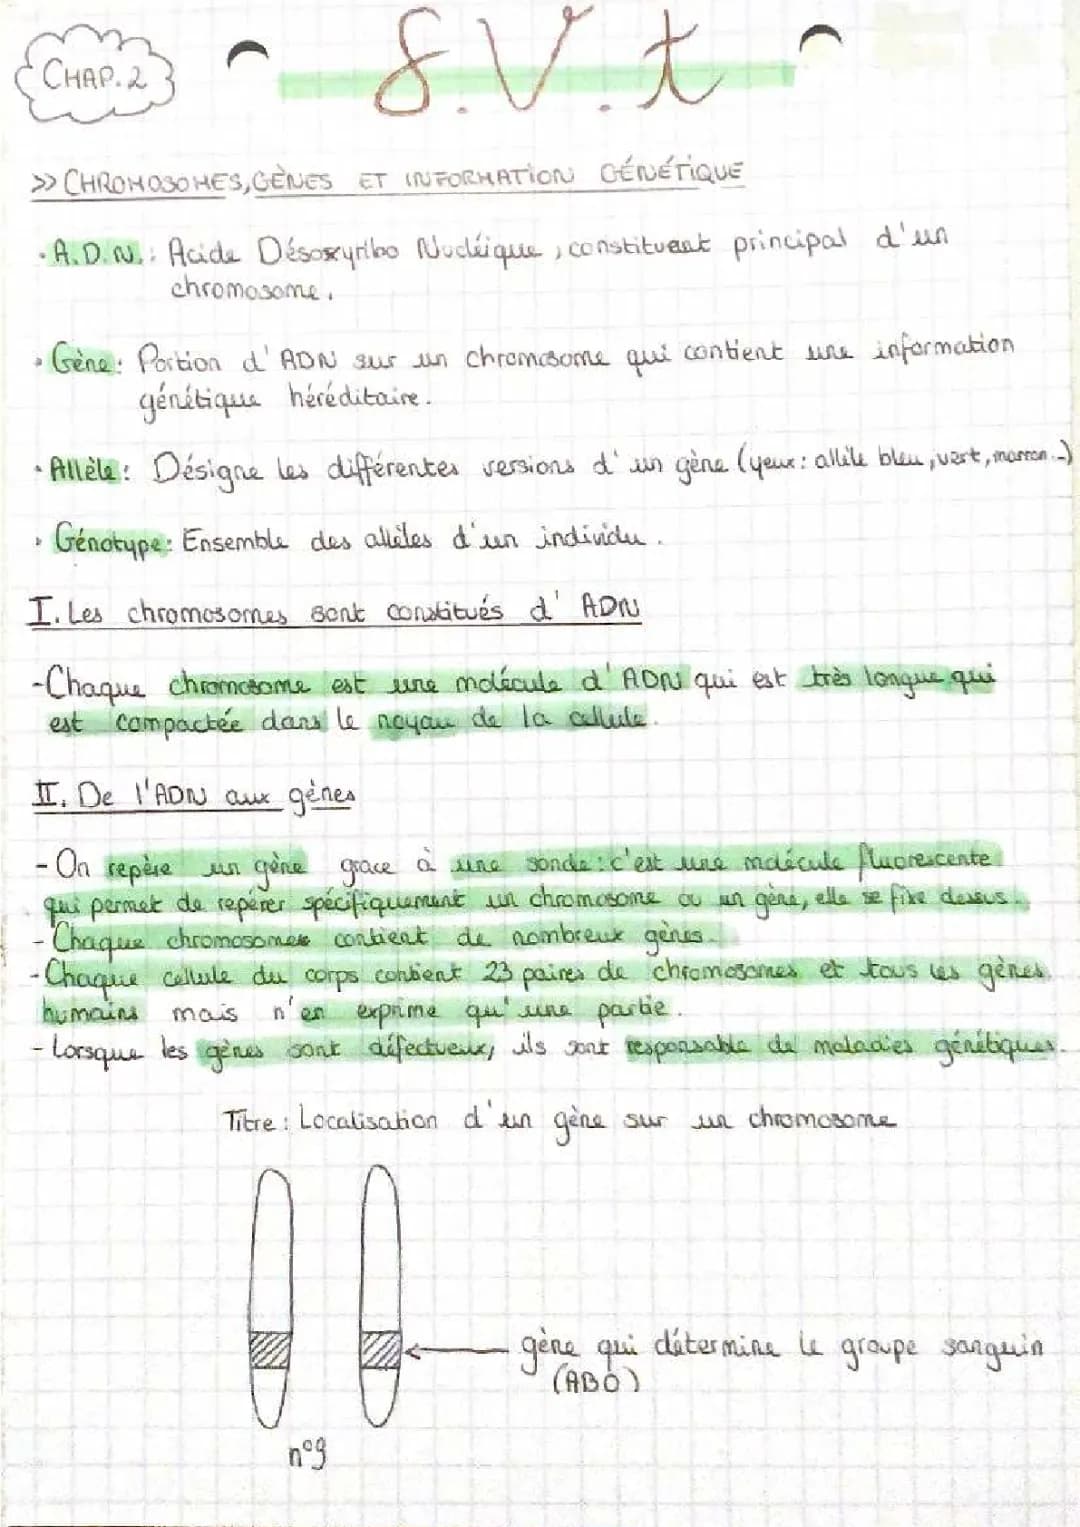 CHAP. 2
S.V.t
>> CHROMOSOMES, GÈNES ET INFORMATION GÉNÉTIQUE
• A.D.N. : Acide Désoxyribo Nucléique, constituant principal d'un
chromosome.
• Gène : Portion d'ADN sur un chromosome qui contient une information
génétique héréditaire.
• Allèle : Désigne les différentes versions d'un gène (yeux : allèle bleu, vert, marron...)
• Génotype : Ensemble des allèles d'un individu.
I. Les chromosomes sont constitués d'ADN
- Chaque chromosome est une molécule d'ADN qui est très longue qui
est compactée dans le noyau de la cellule.
II. De l'ADN aux gènes
- On repère un gène grace à une sonde : c'est une molécule fluorescente
qui permet de repérer spécifiquement un chromosome ou un gène, elle se fixe dessus.
- Chaque chromosomes contient de nombreux gènes.
- Chaque cellule du corps contient 23 paires de chromosomes et tous les gènes
humains mais n'en exprime qu'une partie.
- Lorsque les gènes sont défectueux, ils sont responsable de maladies génétiques.
Titre : Localisation d'un gène sur un chromosome
gène qui détermine le groupe sanguin
(ABO)
n°9